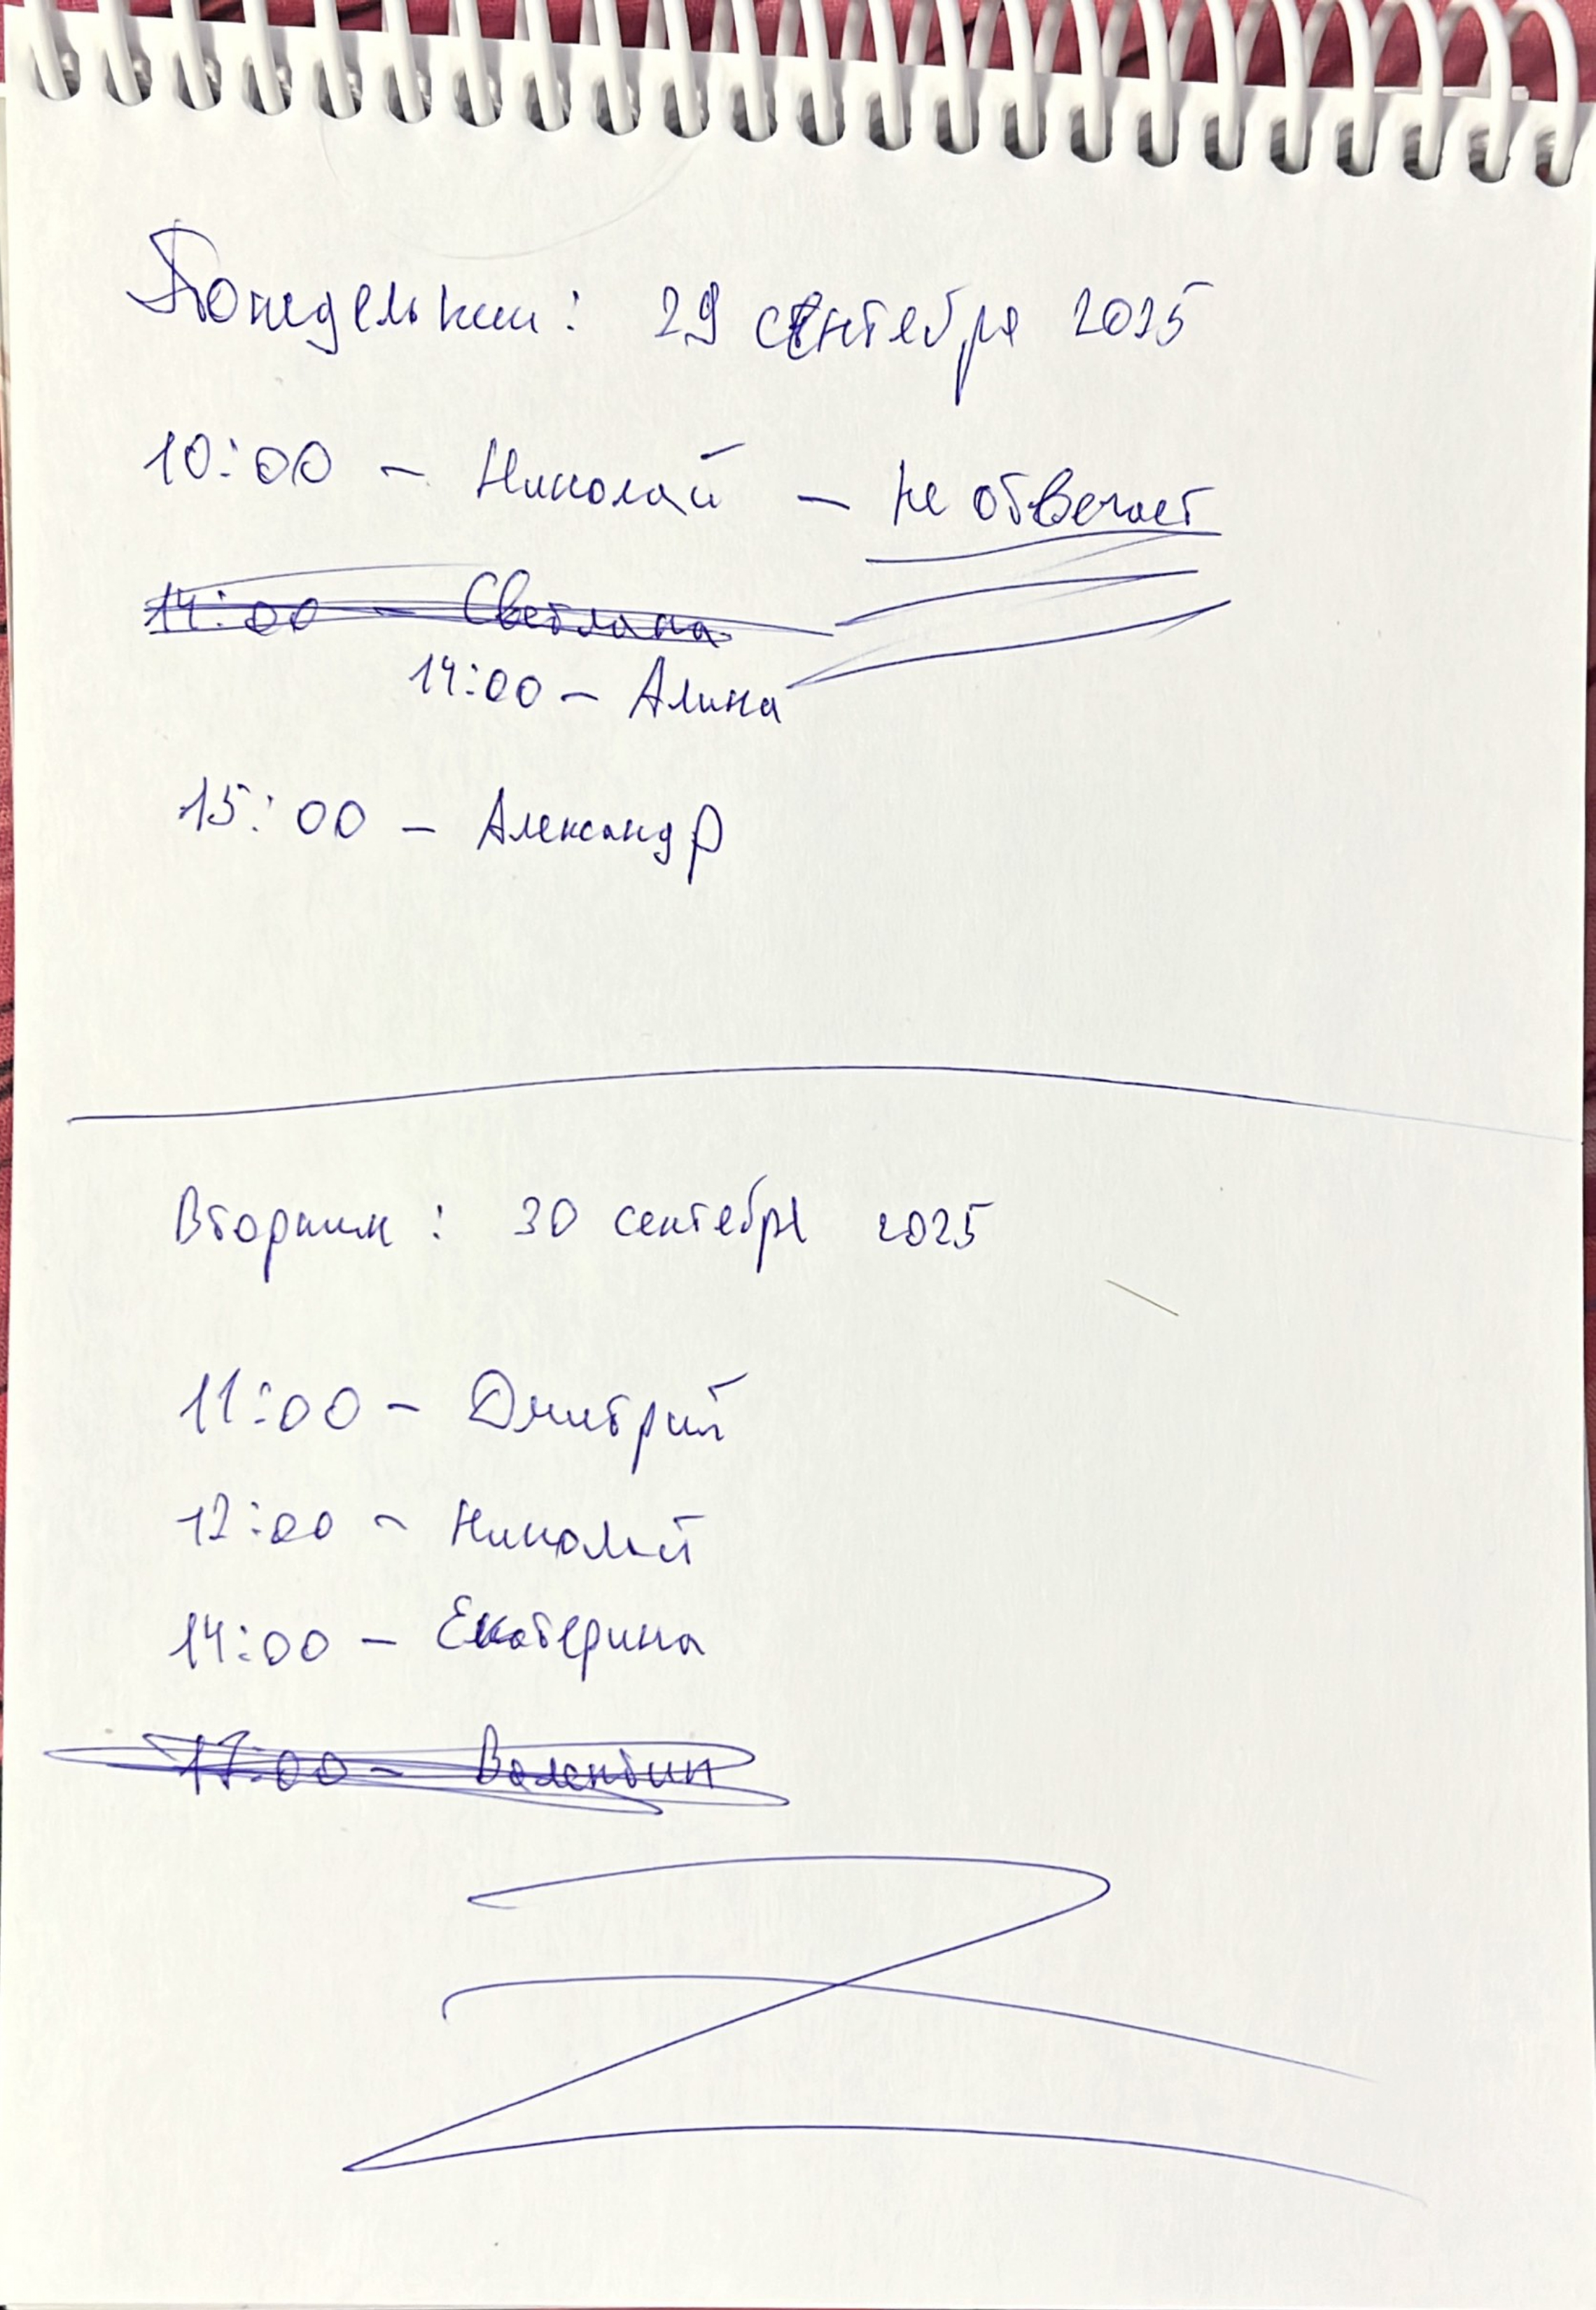 Понедельник: 29 сентября 2025
10:00 - Николай - не отвечает
14:00 - Светлана
14:00 - Алина
15:00 - Александр
Вторник: 30 сентября 2025
11:00 - Дмитрий
12:00 - Николай
14:00 - Екатерина
17:00 - Валентин